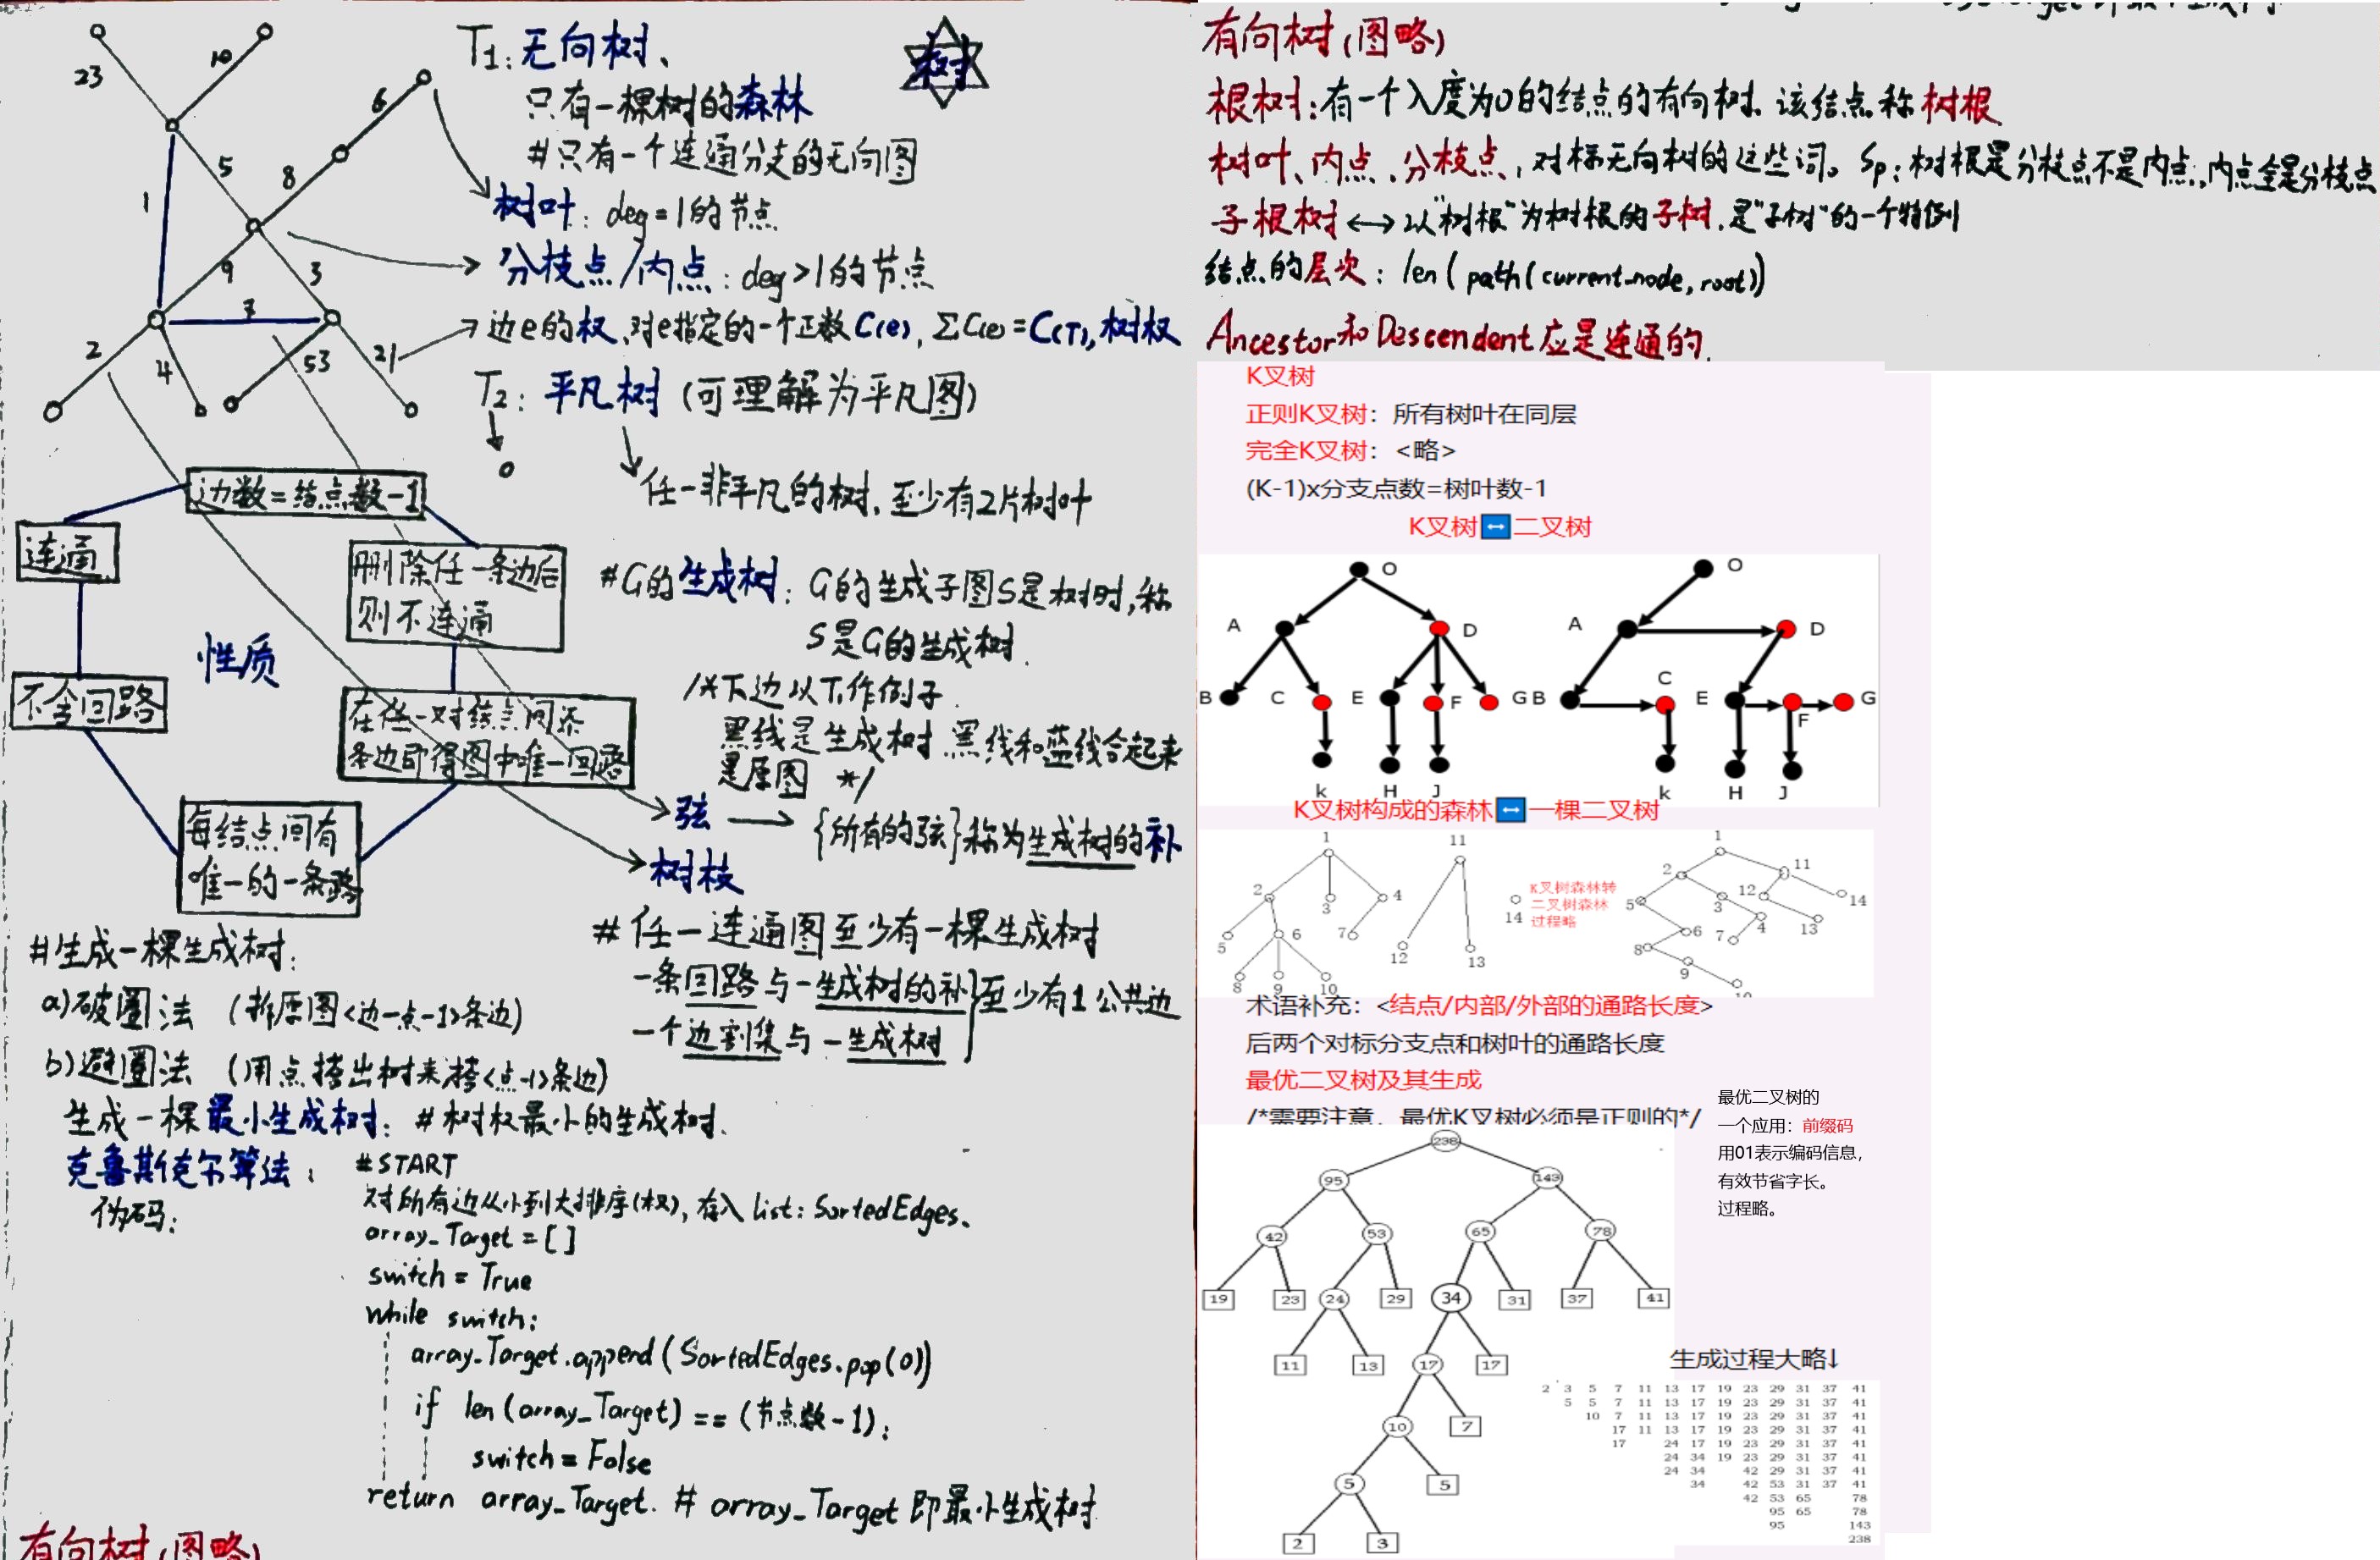 T₁: 无向树、
只有一棵树的森林
#只有一个连通分支的无向图
树
23
10
6
5
8
1
9
3
7
2
4
53
21
树叶: deg=1的节点
分枝点/内点: deg>1的节点
边e的权, 对e指定的一个正数C(e), ΣC(e)=C(T), 树权
T₂: 平凡树 (可理解为平凡图)
任一非平凡的树, 至少有2片树叶
边数=结点数-1
连通
删除任一条边后
则不连通
性质
不含回路
在任一对结点间添
条边即得图中唯一回路
每结点间有
唯一的一条路
#G的生成树: G的生成子图S是树时, 称
S是G的生成树.
/*下边以T₁作例子
黑线是生成树, 黑线和蓝线合起来
是原图 */
弦 → {所有的弦}称为生成树的补
树枝
#任一连通图至少有一棵生成树
一条回路与一生成树的补}至少有1公共边
一个边割集与一生成树
#生成一棵生成树:
a)破圈法 (拆原图<边-点-1>条边)
b)避圈法 (用点搭出树来搭<点-1>条边)
生成一棵最小生成树: #树权最小的生成树.
克鲁斯克尔算法:
伪码:
#START
对所有边从小到大排序(权), 存入list: SortedEdges.
array_Target = []
switch = True
while switch:
array_Target.append(SortedEdges.pop(0))
if len(array_Target) == (节点数-1):
switch = False
return array_Target. # array_Target 即最小生成树
有向树(图略)
有向树(图略)
根树: 有一个入度为0的结点的有向树. 该结点称树根
树叶、内点、分枝点, 对标无向树的这些词。Sp: 树根是分枝点不是内点, 内点全是分枝点
子根树 ↔ 以"树根"为树根的子树, 是"子树"的一个特例
结点的层次: len(path(current-node, root))
Ancestor和Descendent应是连通的.
K叉树
正则K叉树：所有树叶在同层
完全K叉树：<略>
(K-1)x分支点数=树叶数-1
K叉树↔二叉树
O
A
D
B
C
E
F
G
k
H
J
O
A
D
B
C
E
F
G
k
H
J
K叉树构成的森林↔一棵二叉树
1
2
3
4
5
6
7
8
9
10
11
12
13
14
K叉树森林转
二叉树森林
过程略
1
2
11
5
3
12
14
6
7
4
13
8
9
10
术语补充：<结点/内部/外部的通路长度>
后两个对标分支点和树叶的通路长度
最优二叉树及其生成
/*需要注意，最优K叉树必须是正则的*/
最优二叉树的
一个应用：前缀码
用01表示编码信息，
有效节省字长。
过程略。
238
95 143
42 53 65 78
19 23 24 29 34 31 37 41
11 13 17 17
10 7
5 5
2 3
生成过程大略↓
2 3 5 7 11 13 17 19 23 29 31 37 41
5 5 7 11 13 17 19 23 29 31 37 41
10 7 11 13 17 19 23 29 31 37 41
17 11 13 17 19 23 29 31 37 41
17 24 17 19 23 29 31 37 41
24 34 19 23 29 31 37 41
24 34 42 29 31 37 41
34 42 53 31 37 41
42 53 65 78
95 65 78
95 143
238